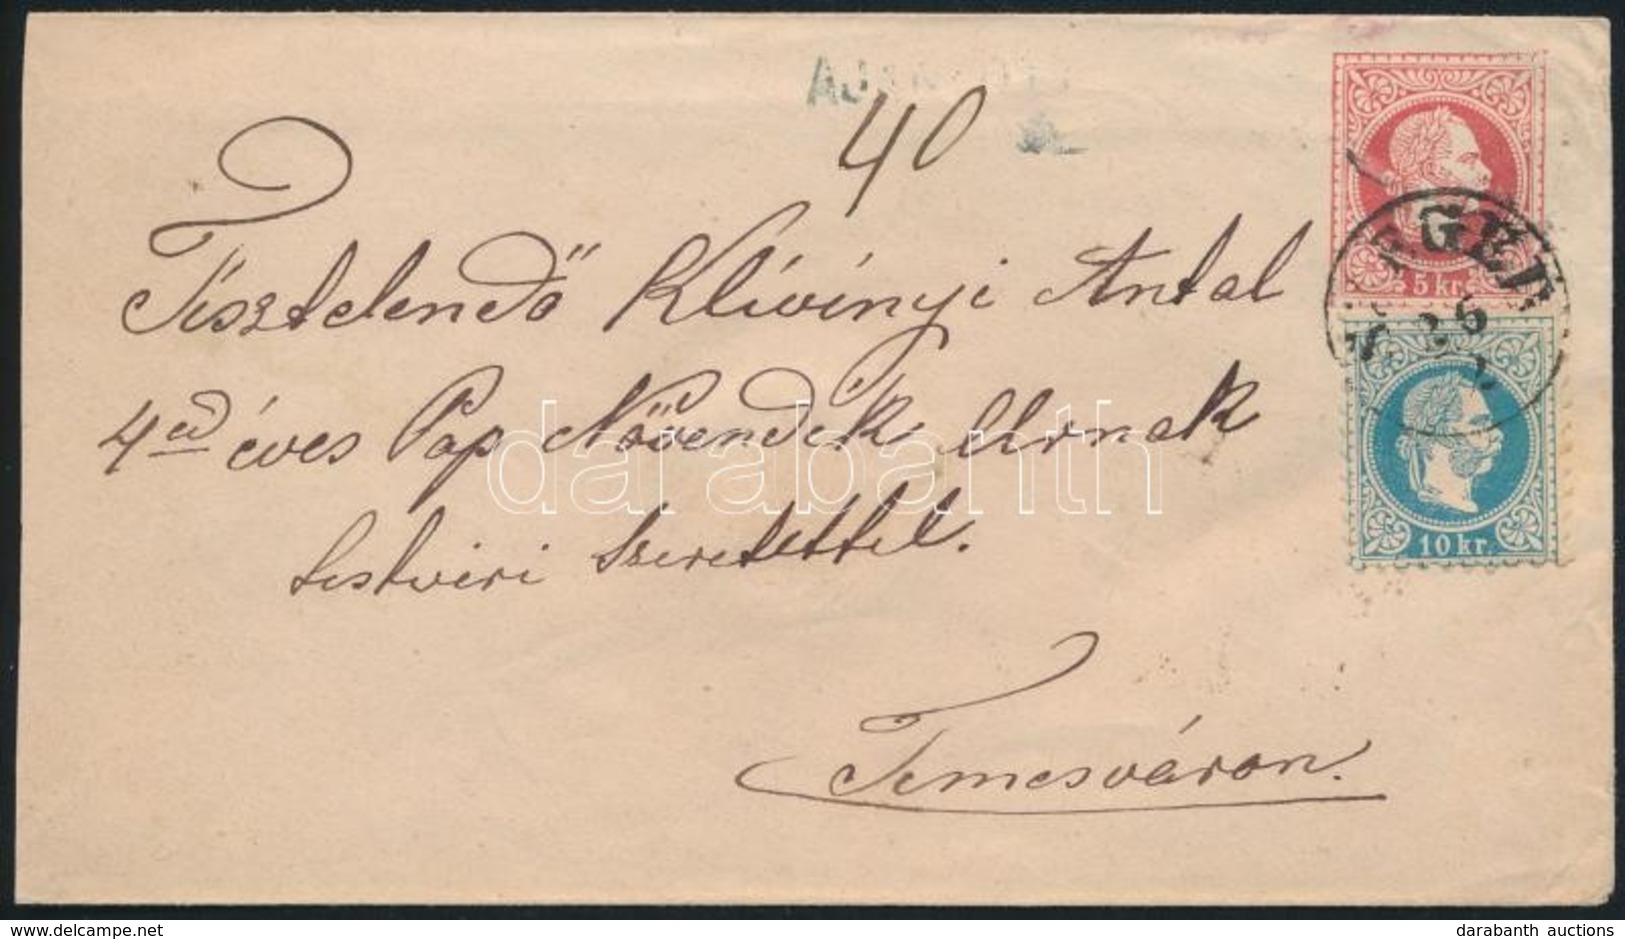 40
5 kr.
Tisztelendő Klivinyi Antal
4ed éves Pap Növendék Urnak
10 kr.
darabanth
testvéri Szeretettel.
Temesváron.
delcampe.net
darabanth auctions